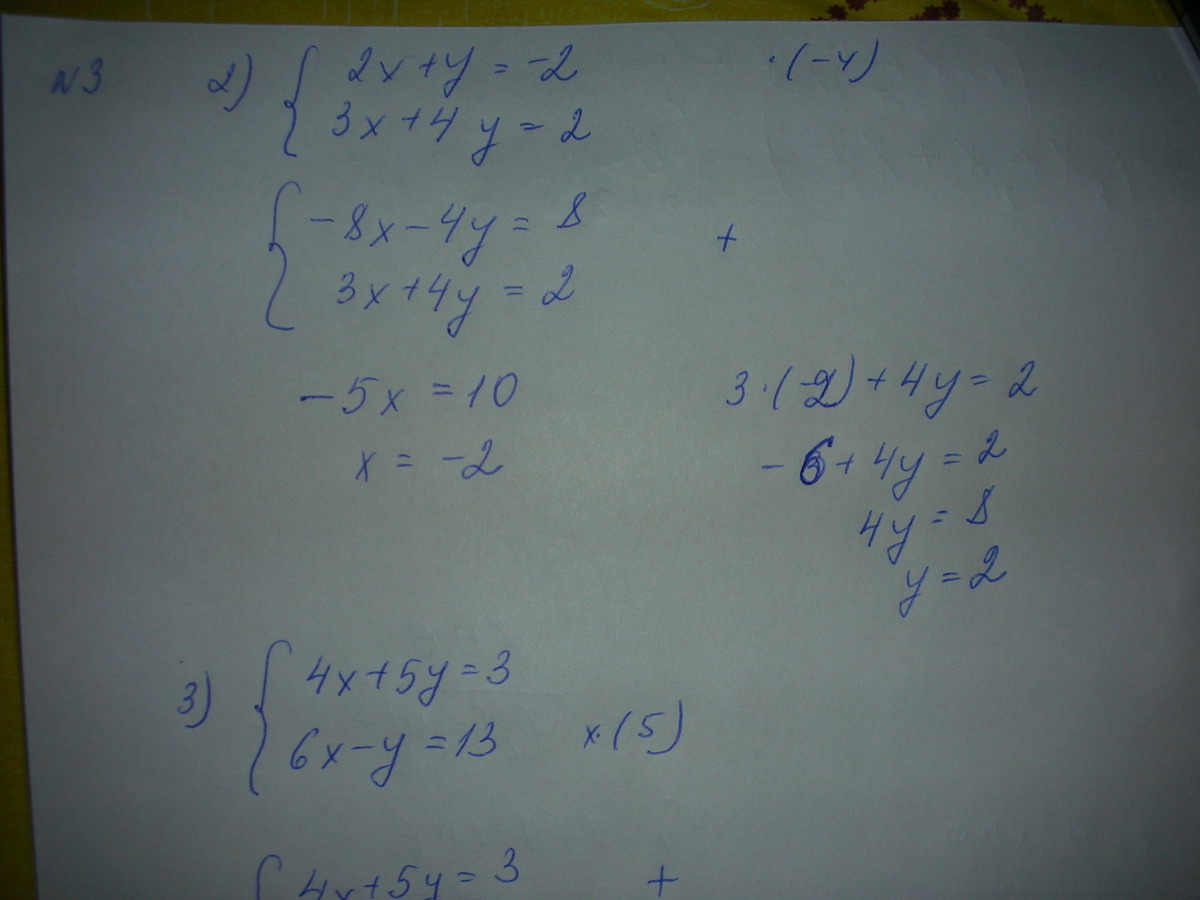 N3 2) { 2x + y = -2 · (-4)
3x + 4y = 2
{ -8x - 4y = 8 +
3x + 4y = 2
-5x = 10
x = -2
3 · (-2) + 4y = 2
-6 + 4y = 2
4y = 8
y = 2
3) { 4x + 5y = 3
6x - y = 13 x · (5)
{ 4x + 5y = 3 +